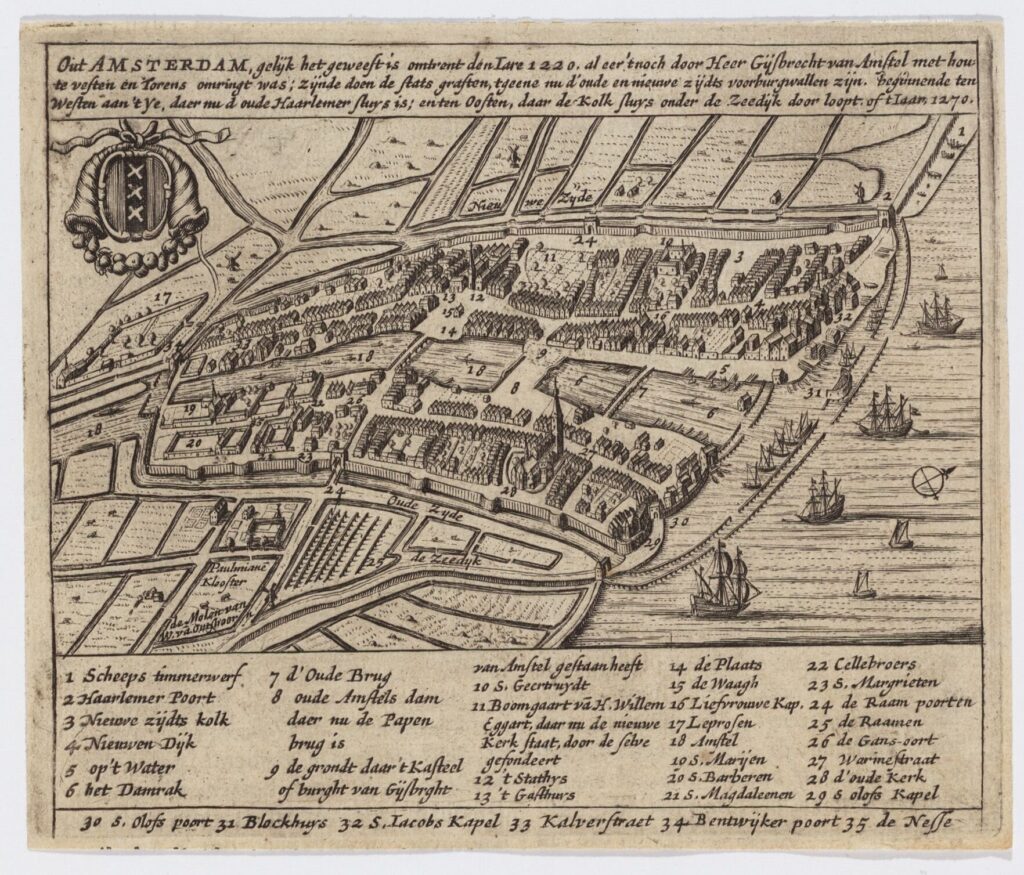 Out AMSTERDAM, gelijk het geweest is omtrent den Iare 1220. al eer 't noch door Heer Gijsbrecht van Amstel met hou-
te vesten en Torens omringt was; zijnde doen de stats graften, tgeene nu d'oude en nieuwe zijdts voorburgwallen zijn. beginnende ten
Westen aan 't Ye, daer nu d'oude Haarlemer sluys is; en ten Oosten, daar de Kolk sluys onder de Zeedijk door loopt. of t Iaar. 1270.
Nieu we Zijde
Oude Zijde
de Zeedijk
Pauliniane
Klooster
de Molen van
1 Scheeps timmerwerf
2 Haarlemer Poort
3 Nieuwe zijdts kolk
4 Nieuwen Dijk
5 op't Water
6 het Damrak
7 d'Oude Brug
8 oude Amstels dam
daer nu de Papen
brug is
9 de grondt daar't Kasteel
of burght van Gijsbrght
van Amstel gestaan heeft
10 S. Geertruydt
11 Boomgaart vā H. Willem
Eggart, daar nu de nieuwe
Kerk staat, door de selve
gefondeert
12 't Stathys
13 't Gasthurs
14 de Plaats
15 de Waagh
16 Liefvrouwe Kap.
17 Leprosen
18 Amstel
10 S. Marijen
20 S. Barberen
21 S. Magdaleenen
22 Cellebroers
23 S. Margrieten
24 de Raam poorten
25 de Raamen
26 de Gans-oort
27 Warmestraat
28 d'oude Kerk
29 S olofs Kapel
30 S. Olofs poort 31 Blockhuys 32 S. Iacobs Kapel 33 Kalverstraet 34 Bentwijker poort 35 de Nesse